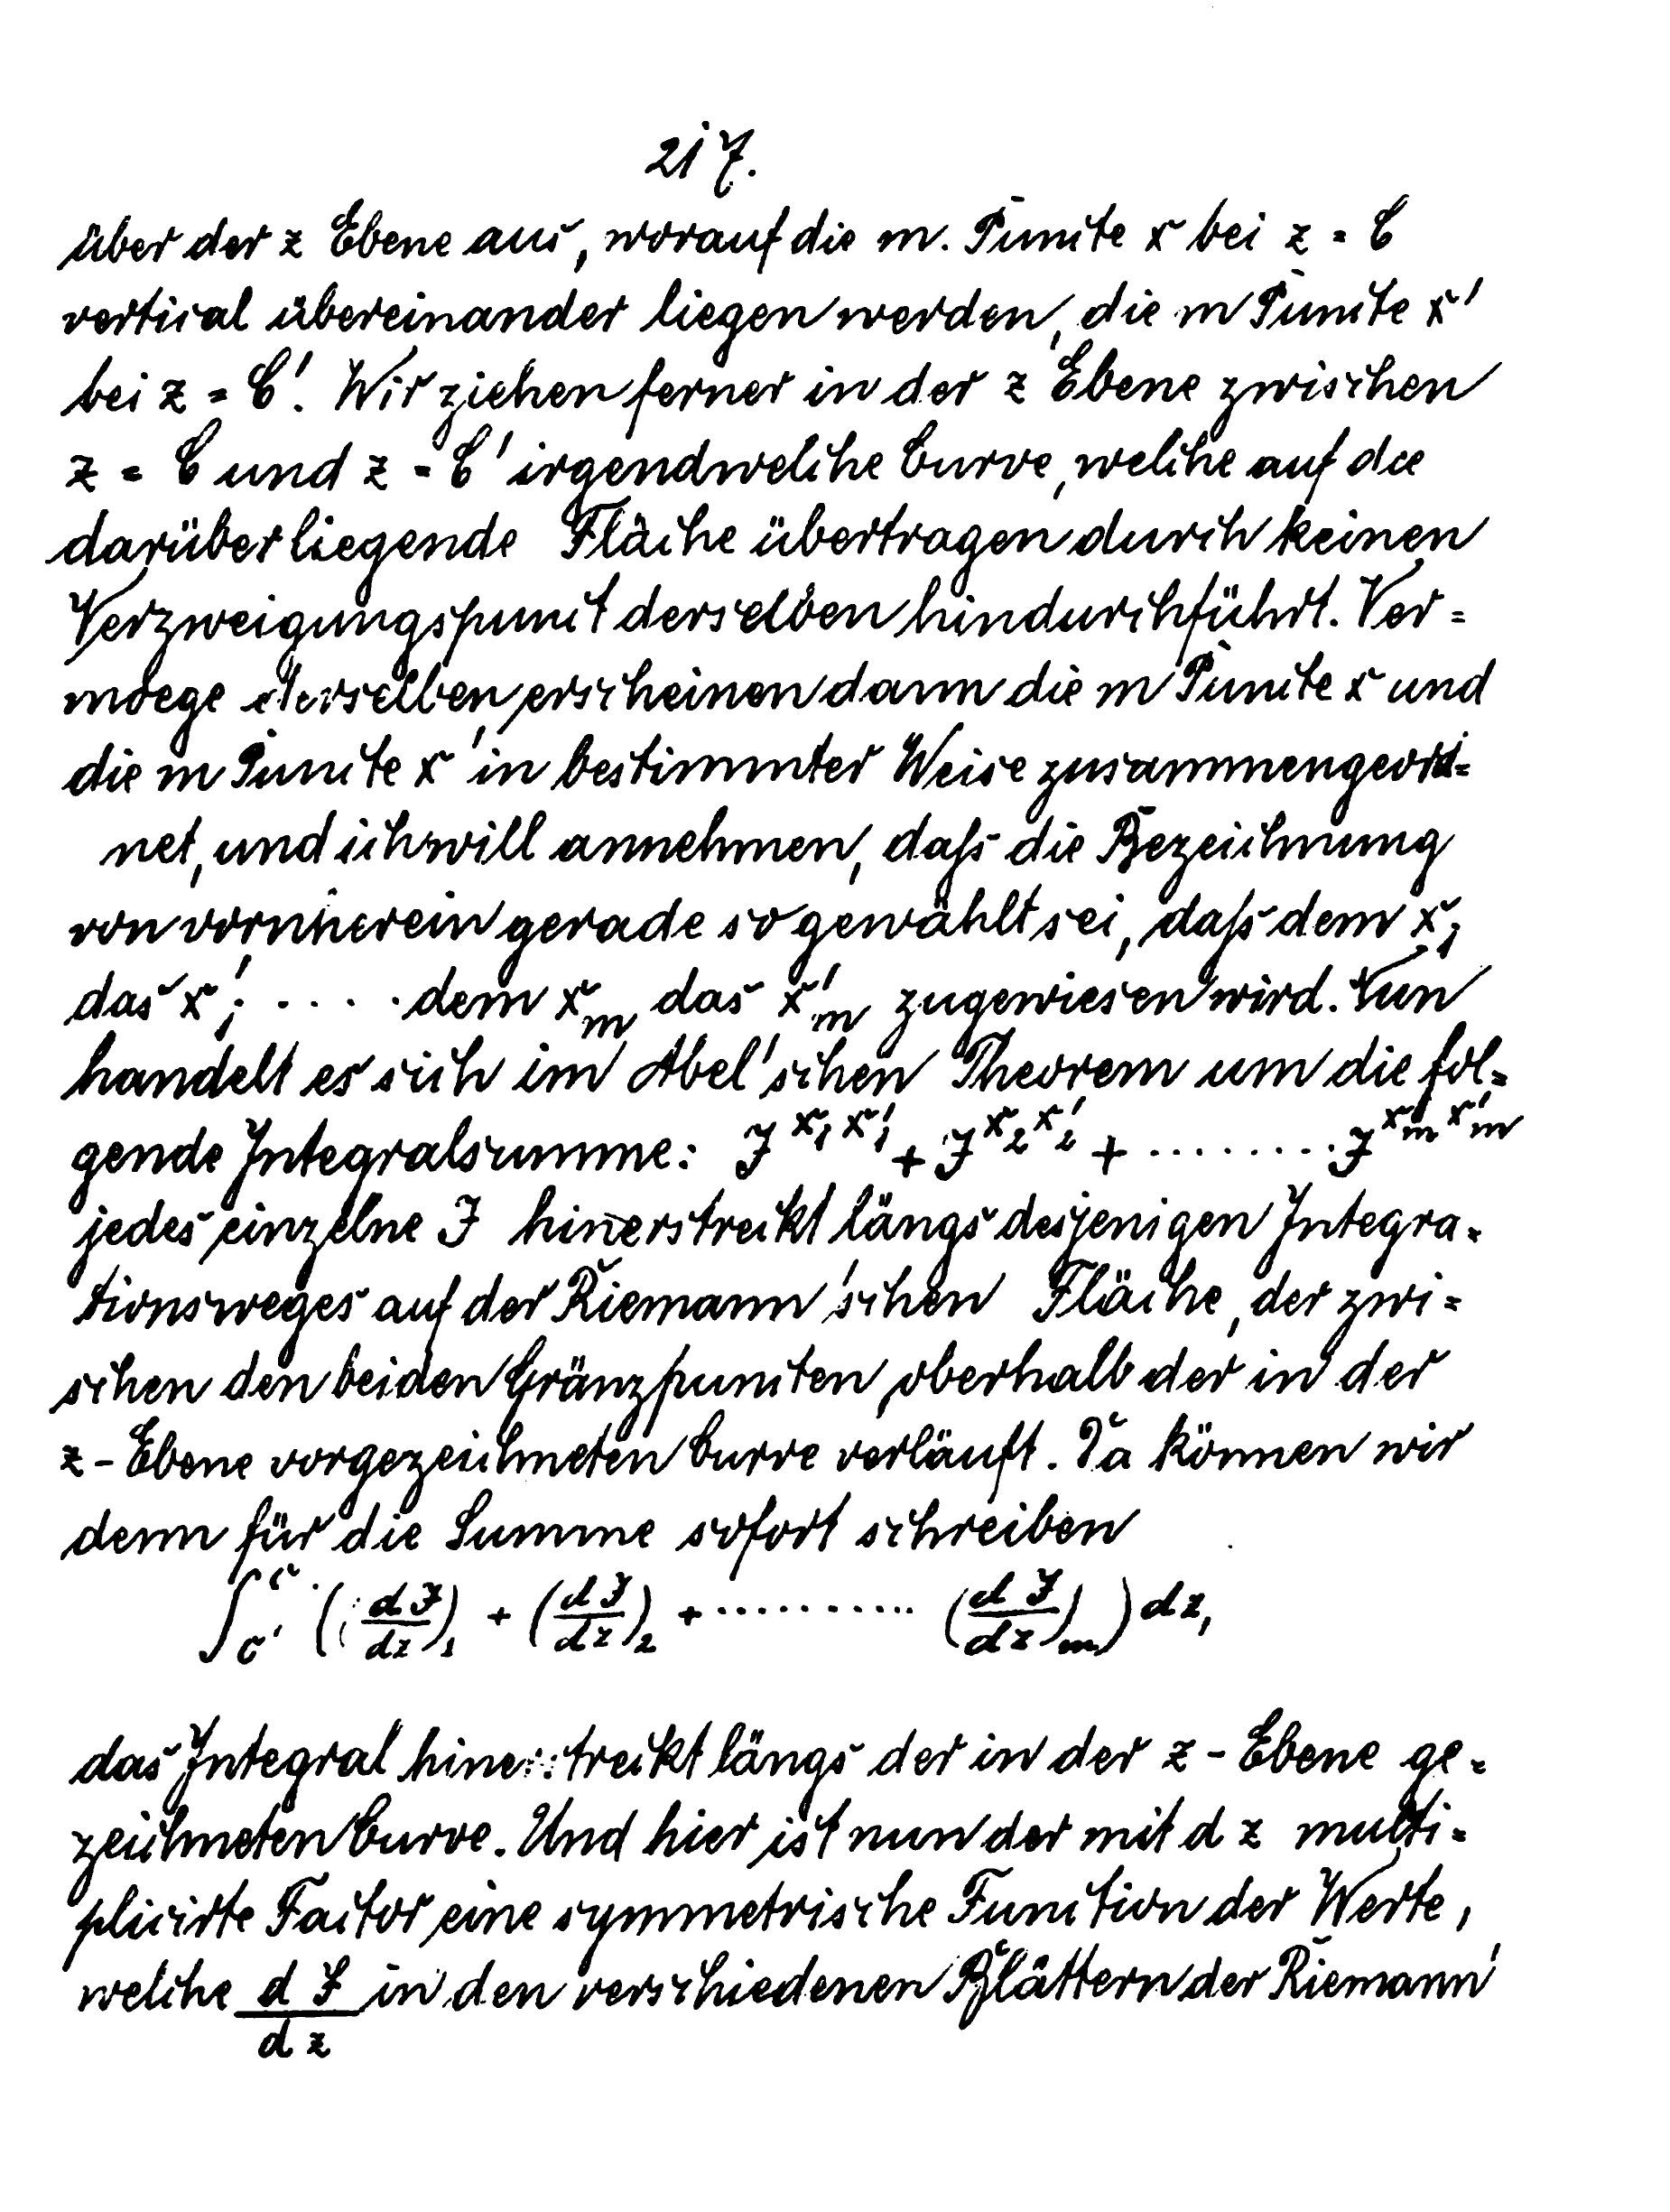 217.
über der z Ebene aus, worauf die m. Puncte x bei z = C
vertical übereinander liegen werden, die m Puncte x'
bei z = C'. Wir ziehen ferner in der z Ebene zwischen
z = C und z = C' irgendwelche Curve, welche auf die
darüberliegende Fläche übertragen durch keinen
Verzweigungspunct derselben hindurchführt. Ver=
moege derselben erscheinen dann die m Puncte x und
die m Puncte x' in bestimmter Weise zusammengeord=
net, und ich will annehmen, daß die Bezeichnung
von vornherein gerade so gewählt sei, daß dem x₁
das x'₁ ..... dem xₘ das x'ₘ zugewiesen wird. Nun
handelt es sich im Abel'schen Theorem um die fol=
gende Integralsumme: J^{x₁x'₁} + J^{x₂x'₂} + ........ J^{xₘx'ₘ}
jedes einzelne J hinerstreckt längs desjenigen Integra=
tionsweges auf der Riemann'schen Fläche, der zwi=
schen den beiden Gränzpuncten oberhalb der in der
z-Ebene vorgezeichneten Curve verläuft. Da können wir
denn für die Summe sofort schreiben
∫_{C'}^{C} ((dJ/dz)₁ + (dJ/dz)₂ + .......... (dJ/dz)ₘ) dz,
das Integral hinerstreckt längs der in der z-Ebene ge=
zeichneten Curve. Und hier ist nun der mit dz multi=
plicirte Factor eine symmetrische Function der Werte,
welche dJ/dz in den verschiedenen Blättern der Riemann'